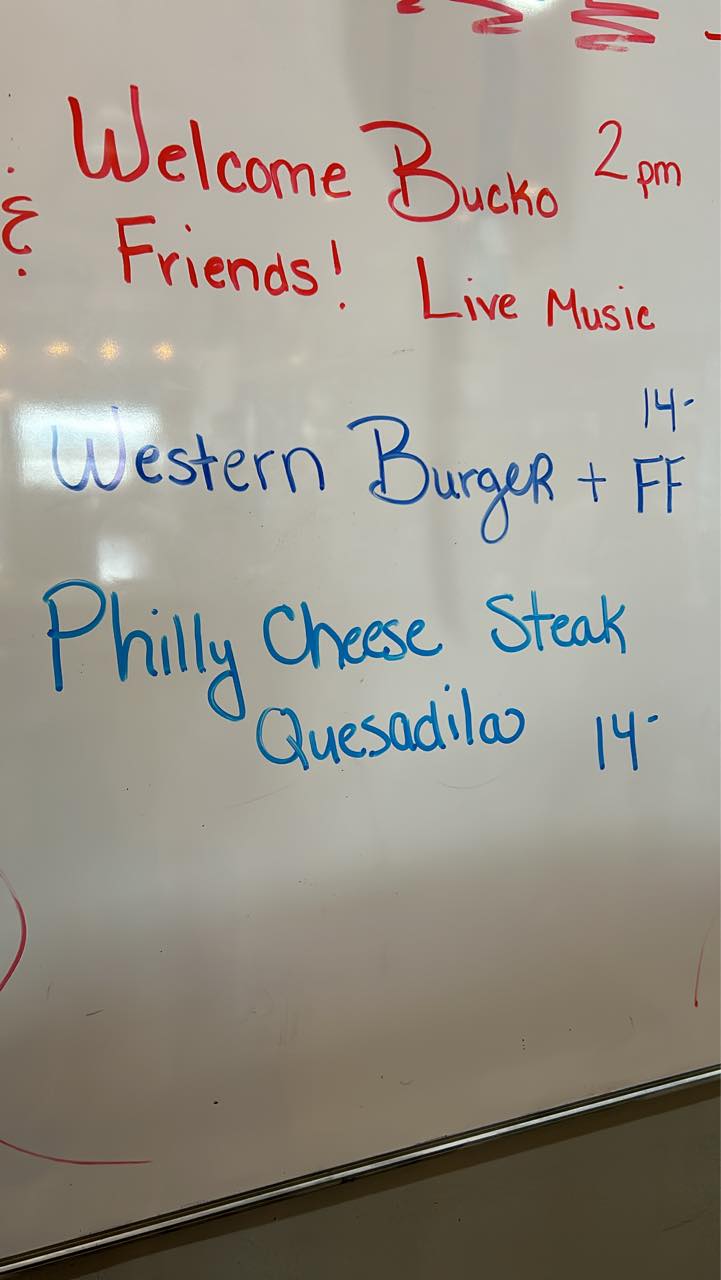 Welcome Bucko 2pm
& Friends! Live Music
14-
Western Burger + FF
Philly Cheese Steak
Quesadila 14-